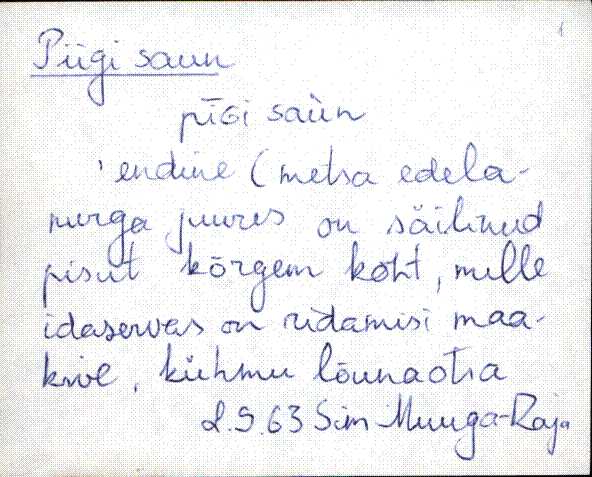 1
Piigi saun
pīGi saùn
' endine (metsa edela-
nurga juures on säilinud
pisut kõrgem koht, mille
idaservas on ridamisi maa-
kive, kühmu lõunaotsa
L.S. 63 Sim Muuga-Raja